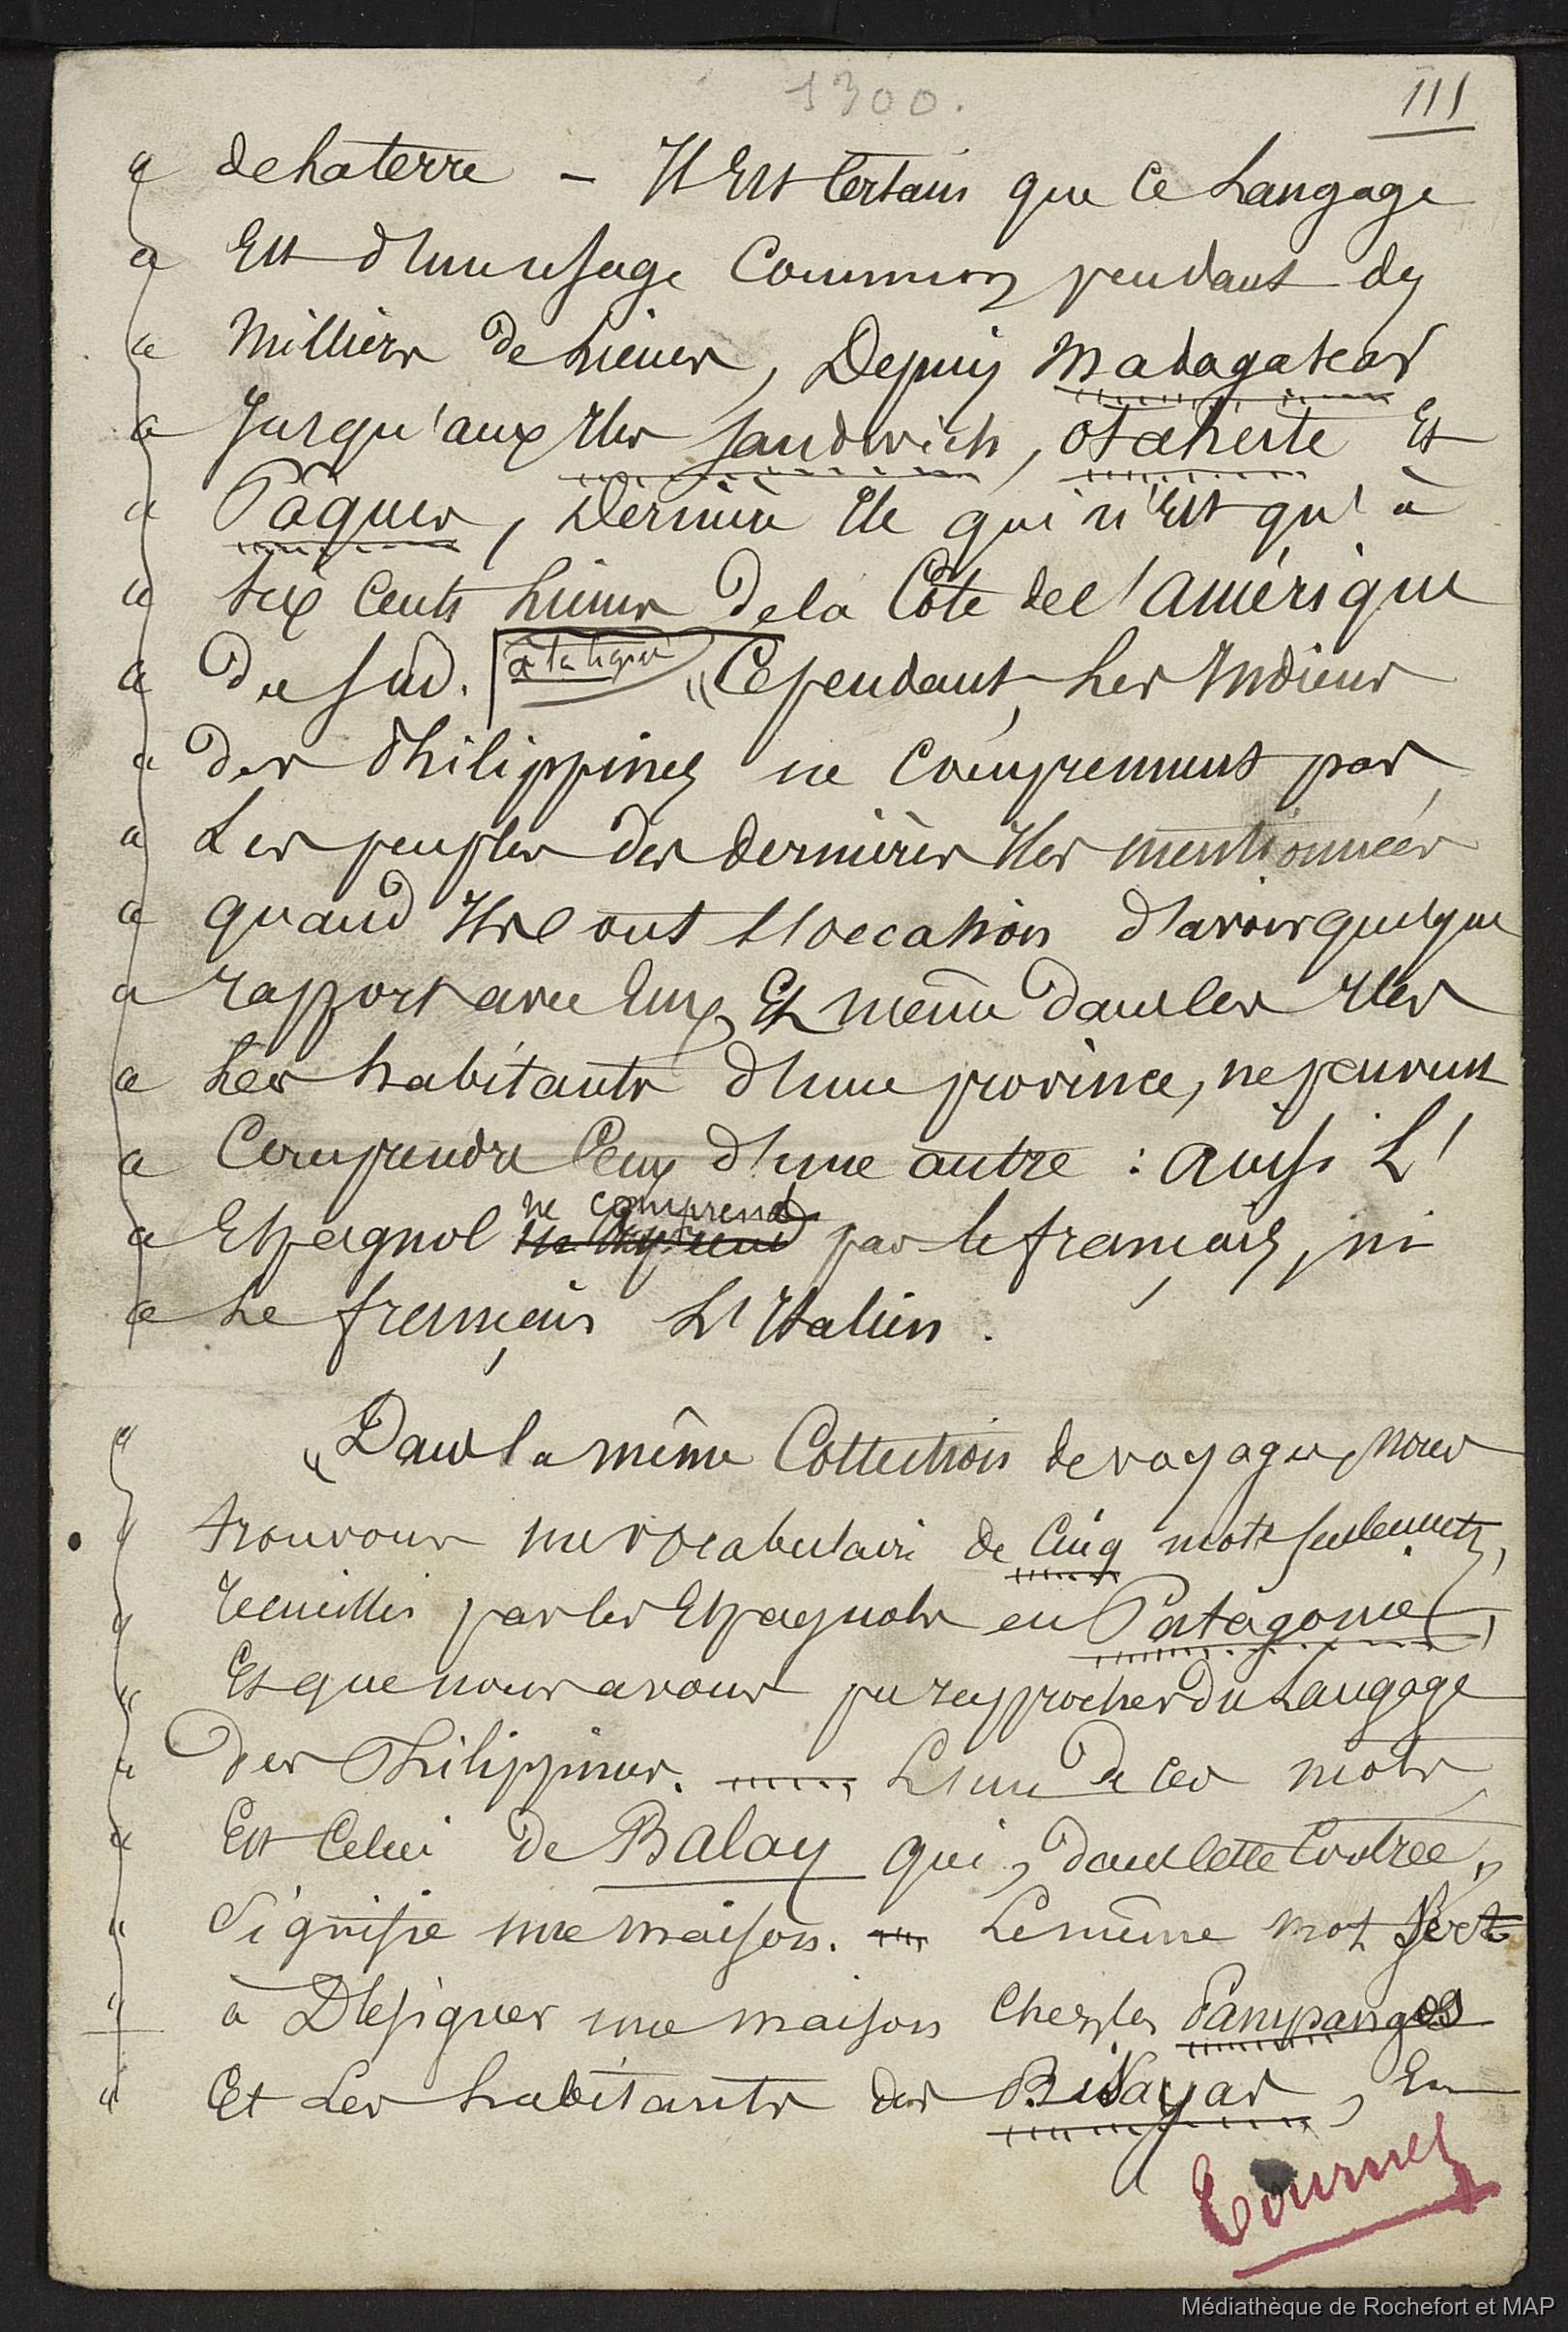 1300.
III
« de La terre — Il Est Certain que Ce Langage
« Est d'un usage Commun pendant des
« Milliers de Lieues, Depuis Madagascar
« Jusqu'aux Iles Sandwich, Otaheite Et
« Pâques, Dernière Ile qui n'Est qu'à
« six Cents Lieues de la Côte de l'Amérique
« du Sud. à la ligne « Cependant, Les Indiens
« des Philippines ne Comprennent pas,
« Les peuples des dernières Iles mentionnées
« quand Ils ont l'occasion d'avoir quelque
« rapport avec Eux, Et même dans les Iles
« Les habitants d'une province, ne peuvent
« Comprendre Ceux d'une autre : aussi L'
« Espagnol ne comprend pas le français, ni
« Le français L'Italien.
« Dans la même Collection de voyages, nous
« trouvons un vocabulaire de Cinq mots seulement,
« recueillis par les Espagnols en Patagonie,
« Et que nous avons pu rapprocher du Langage
« des Philippines. L'un de ces mots
« Est Celui de Balay qui, dans cette Contrée,
« Signifie une maison. Le même mot sert
« à Désigner une maison Chez les Pampangos
« Et Les habitants des Bisayas, En
Tournez
Médiathèque de Rochefort et MAP